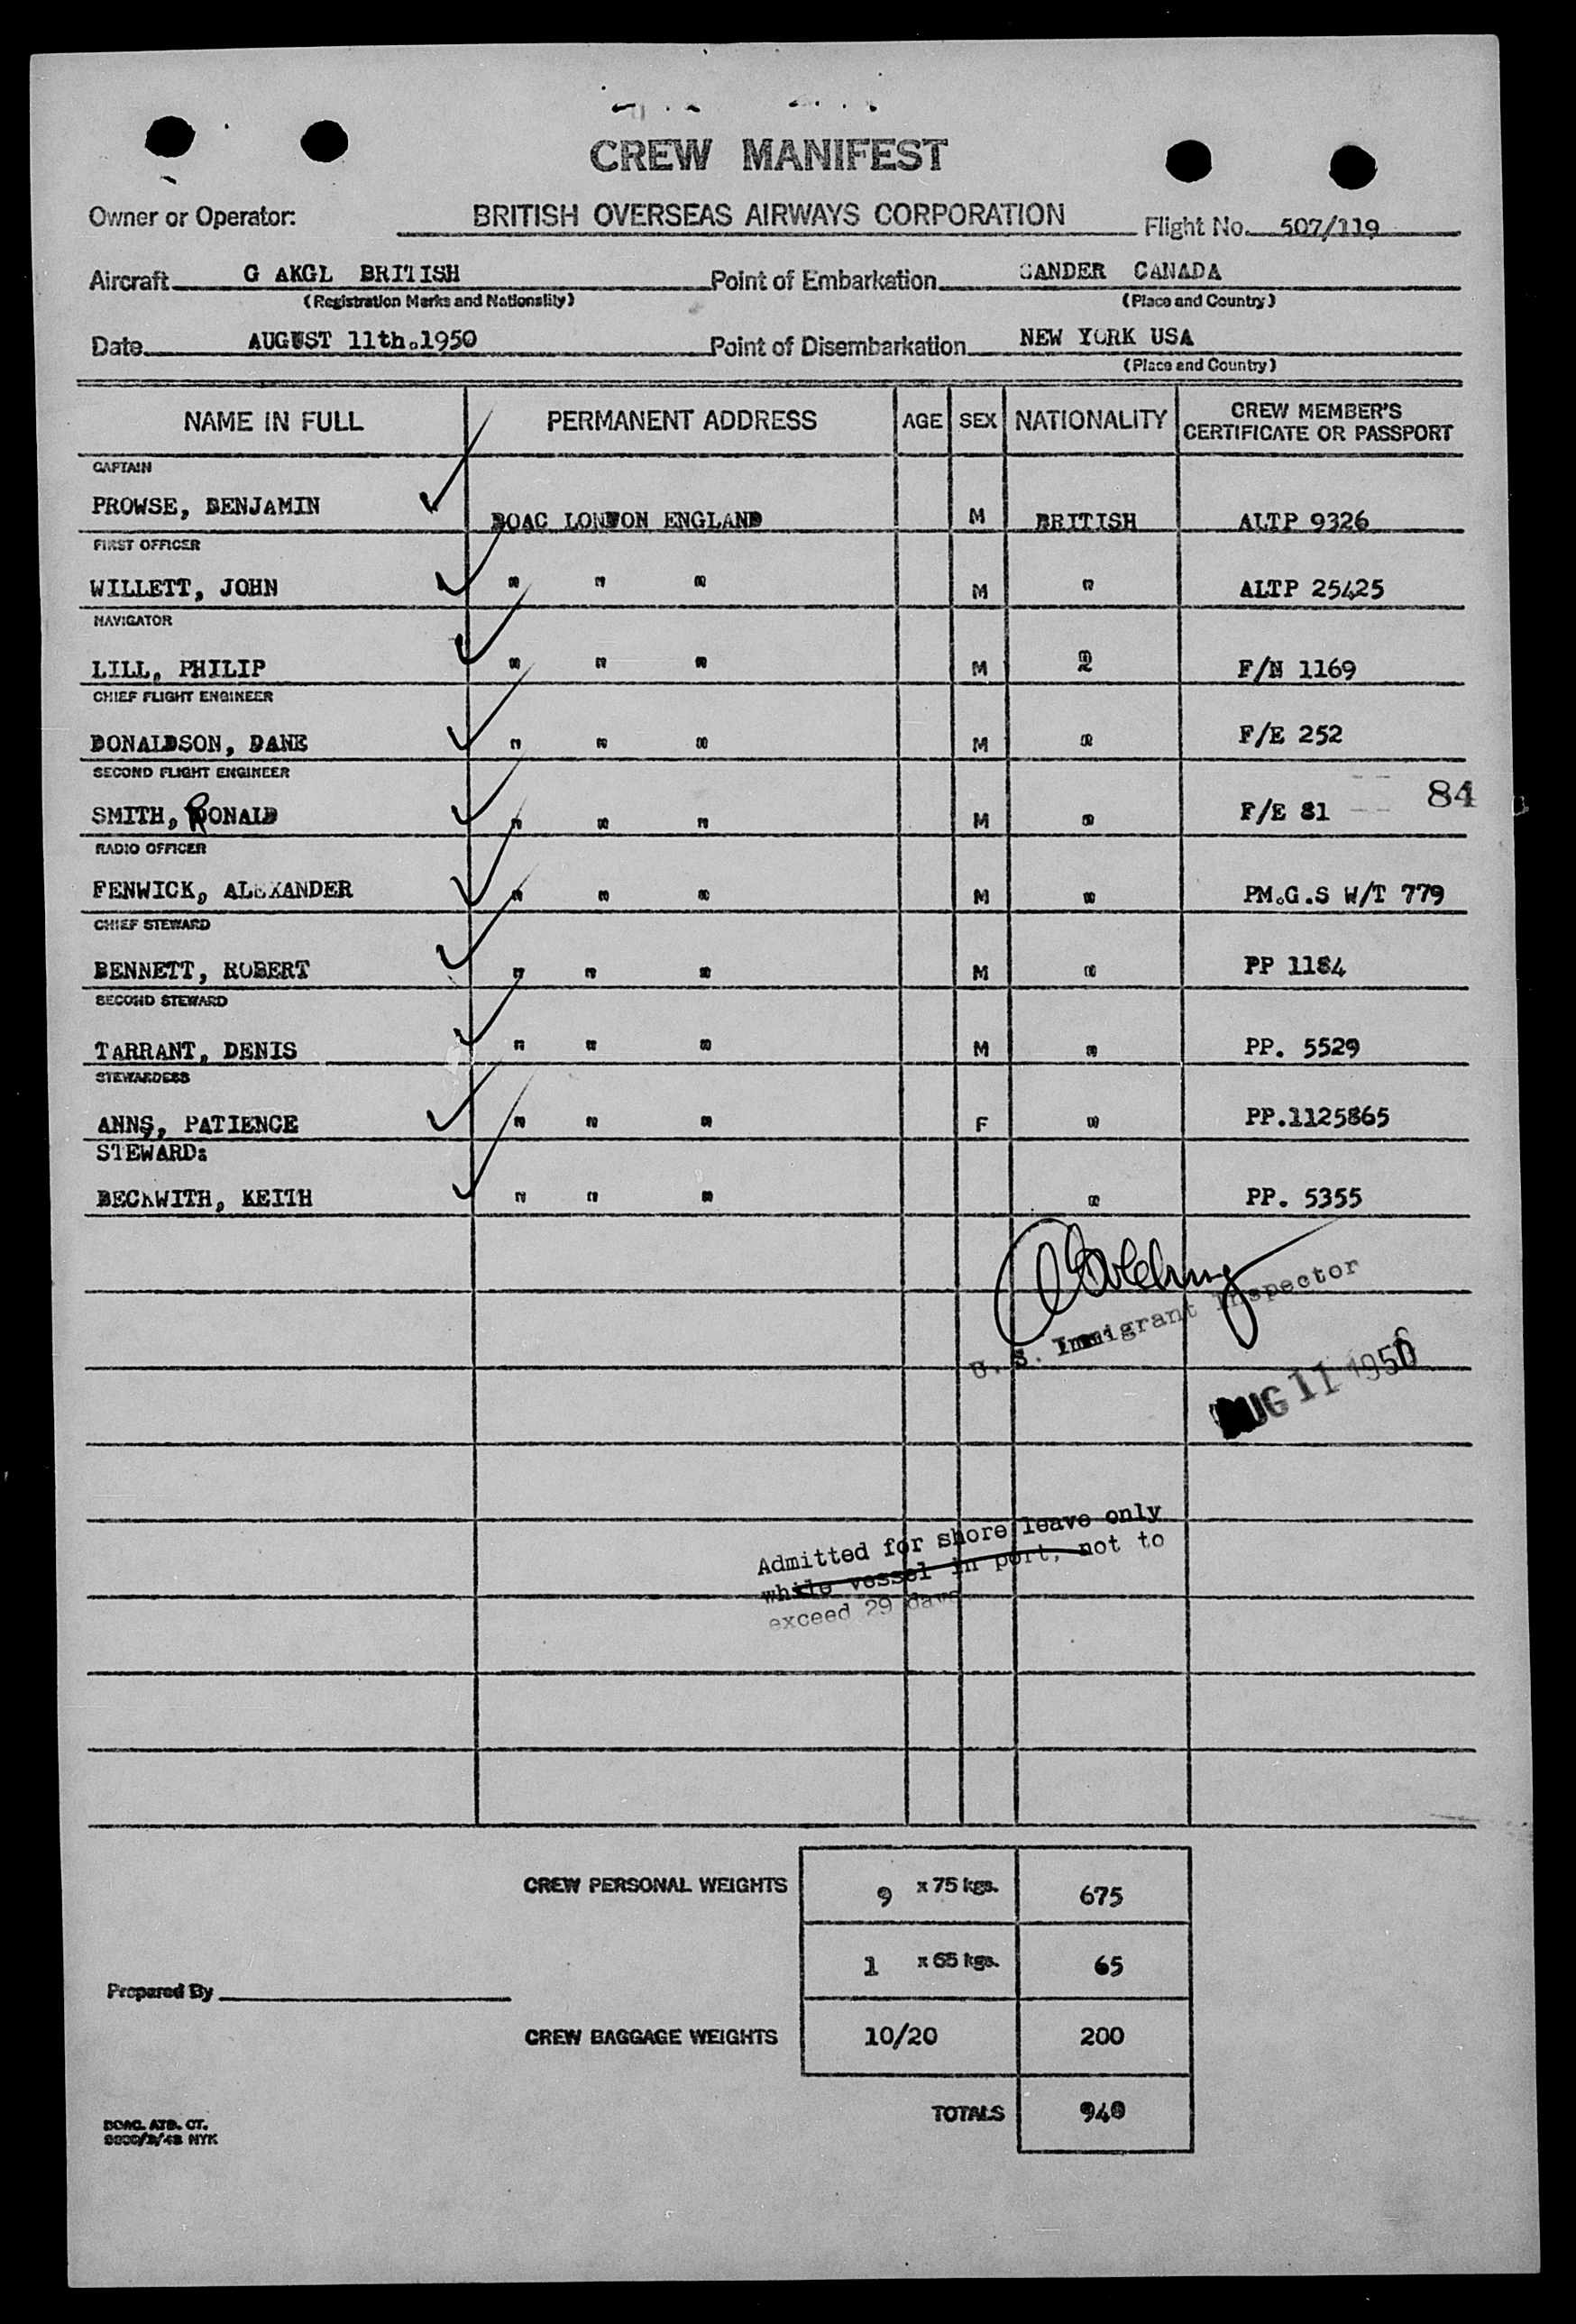 CREW MANIFEST
Owner or Operator: BRITISH OVERSEAS AIRWAYS CORPORATION Flight No. 507/119
Aircraft G AKGL BRITISH Point of Embarkation GANDER CANADA
(Registration Marks and Nationality) (Place and Country)
Date AUGUST 11th.1950 Point of Disembarkation NEW YORK USA
(Place and Country)
NAME IN FULL PERMANENT ADDRESS AGE SEX NATIONALITY CREW MEMBER'S CERTIFICATE OR PASSPORT
CAPTAIN
PROWSE, BENJAMIN BOAC LONDON ENGLAND M BRITISH ALTP 9326
FIRST OFFICER
WILLETT, JOHN " " " M " ALTP 25425
NAVIGATOR
LILL, PHILIP " " " M " F/N 1169
CHIEF FLIGHT ENGINEER
DONALDSON, DANE " " " M " F/E 252
SECOND FLIGHT ENGINEER
SMITH, RONALD " " " M " F/E 81
84
RADIO OFFICER
FENWICK, ALEXANDER " " " M " PM.G.S W/T 779
CHIEF STEWARD
BENNETT, ROBERT " " " M " PP 1184
SECOND STEWARD
TARRANT, DENIS " " " M " PP. 5529
STEWARDESS
ANNS, PATIENCE " " " F " PP.1125865
STEWARD:
BECKWITH, KEITH " " " " PP. 5355
U. S. Immigrant Inspector
AUG 11 1950
Admitted for shore leave only
while vessel in port, not to
exceed 29 days
CREW PERSONAL WEIGHTS 9 x 75 kgs. 675
1 x 65 kgs. 65
Prepared By
CREW BAGGAGE WEIGHTS 10/20 200
TOTALS 940
BOAC. ATD. CT.
NYK